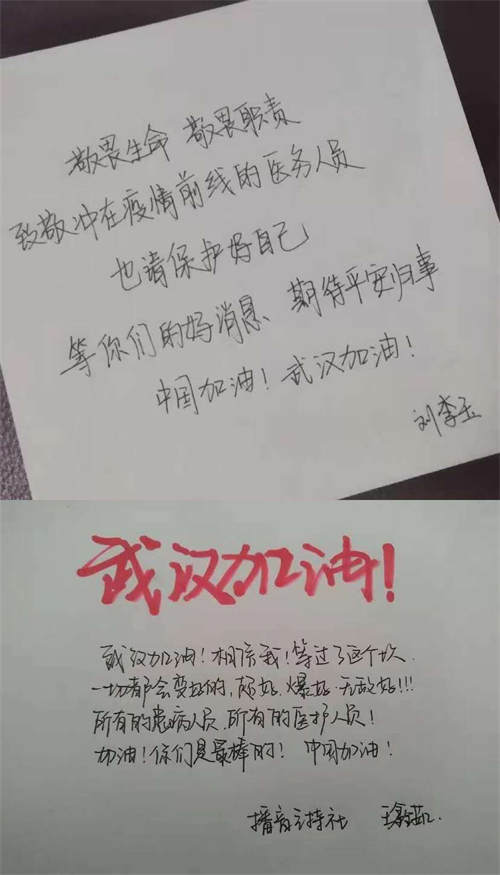 敬畏生命 敬畏职责
致敬冲在疫情前线的医务人员
也请保护好自己
等你们的好消息、期待平安归事
中国加油！武汉加油！
刘李玉
武汉加油！
武汉加油！相信我！等过了这个坎
一切都会变好的，超好、爆好、无敌好!!!
所有的患病人员、所有的医护人员！
加油！你们是最棒的！ 中国加油！
播音主持社